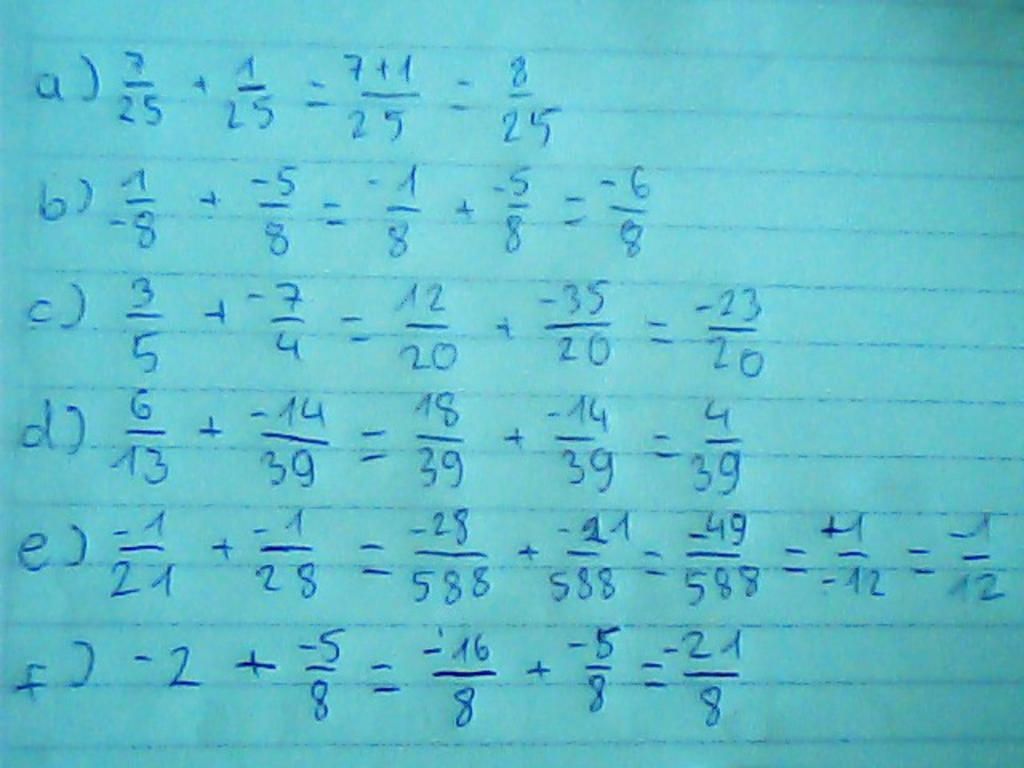 a) 7/25 + 1/25 = 7+1/25 = 8/25
b) 1/-8 + -5/8 = -1/8 + -5/8 = -6/8
c) 3/5 + -7/4 = 12/20 + -35/20 = -23/20
d) 6/13 + -14/39 = 18/39 + -14/39 = 4/39
e) -1/21 + -1/28 = -28/588 + -21/588 = -49/588 = +1/-12 = -1/12
f) -2 + -5/8 = -16/8 + -5/8 = -21/8